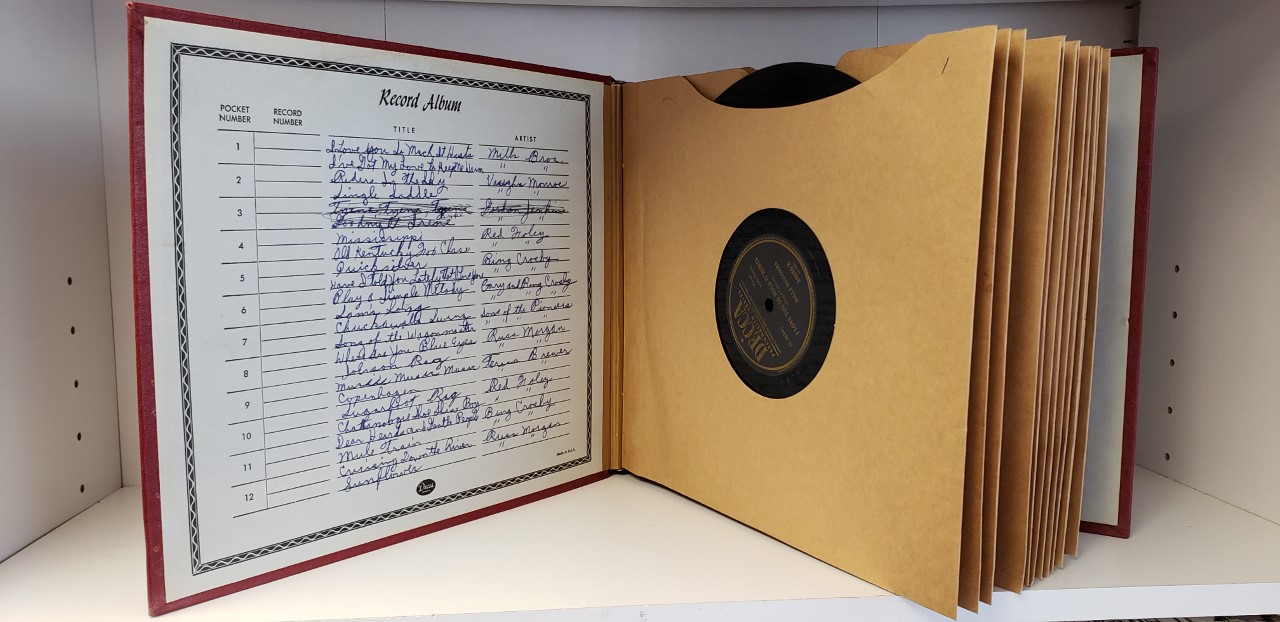 Record Album
POCKET NUMBER RECORD NUMBER TITLE ARTIST
1 I Love You So Much It Hurts Mills Bros.
I've Got My Love to Keep Me Warm " "
2 Riders In The Sky Vaughn Monroe
Single Saddle " "
3 Tzena, Tzena, Tzena Gordon Jenkins
Goodnight Irene " "
4 Mississippi Red Foley
Old Kentucky Fox Chase " "
5 Quicksilver Bing Crosby
Have I Told You Lately That I Love You " "
6 Play a Simple Melody Gary and Bing Crosby
Sams Song " "
7 Chuckawalla Swing Sons of the Pioneers
Song of the Wagonmaster " "
8 Where Are You Blue Eyes Russ Morgan
Johnson Rag " "
9 Music Music Music Teresa Brewer
Copenhagen " "
10 Sugarfoot Rag Red Foley
Chattanoogie Shoe Shine Boy " "
11 Dear Hearts and Gentle People Bing Crosby
Mule Train " "
12 Cruising Down the River Russ Morgan
Sunflower " "
Decca
MADE IN U.S.A.
DECCA